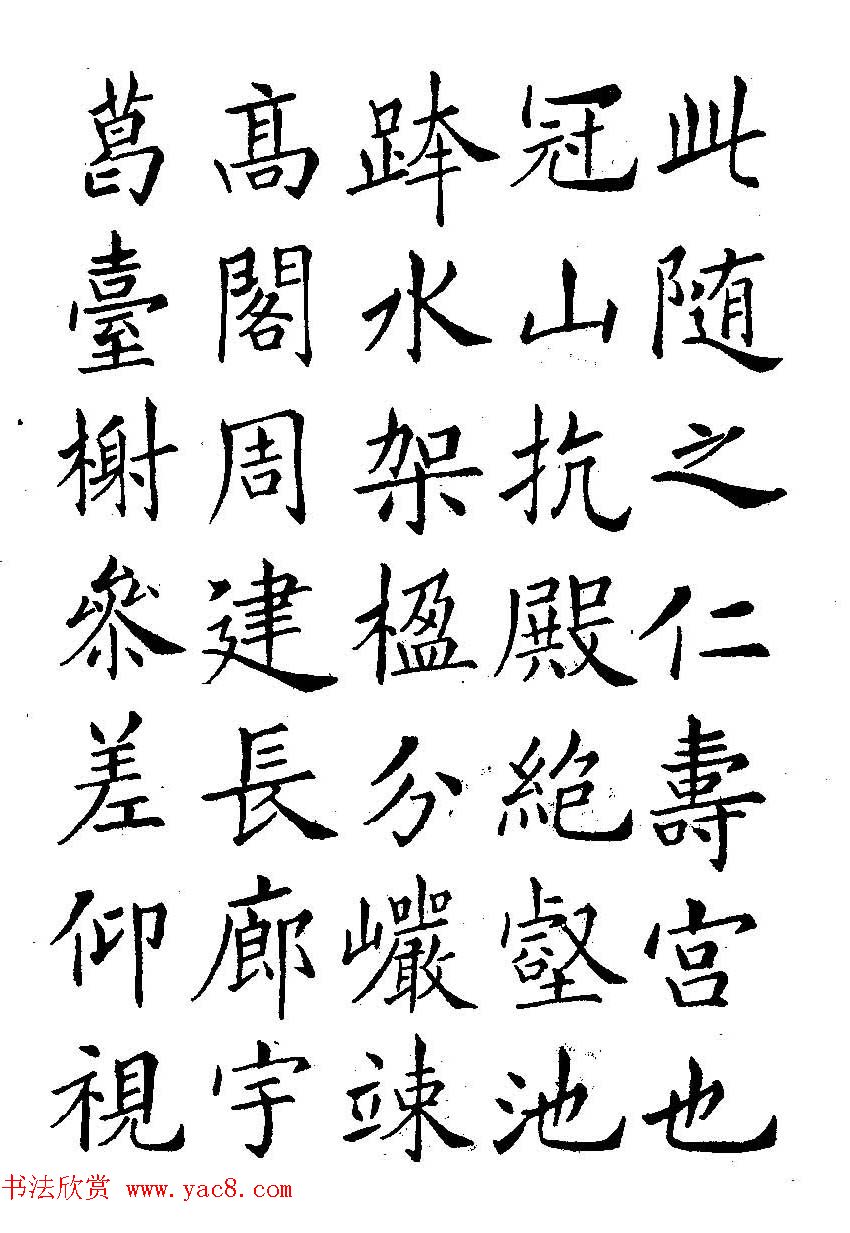 此随之仁壽宫也
冠山抗殿絶壑池
跨水架楹分巖竦
髙閣周建長廊宇
葛臺榭叅差仰視
书法欣赏 www.yac8.com